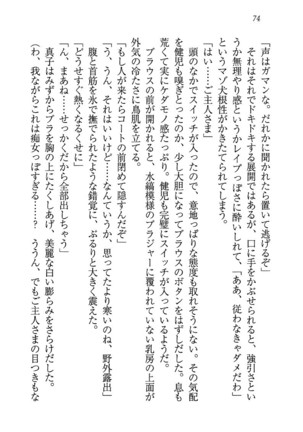 74
「声はガマンな。だれかに聞かれたら置いて逃げるぞ」
それはそれでドキドキする展開ではあるが、口に手をかぶせられると、強引さとい
うか無理やり感というかレイプっぽさに酔いしれてしまって、「ああ、従わなきゃダメだわ」
というマゾ犬根性がかきたてられてしまう。
「はい……ご主人さま」
そのひと言でスイッチが入ったので、意地っぱりな態度も取れそうにない。その気配
を健児も嗅ぎとったのか、少し大胆になってブラウスのボタンをはずしだした。息も
荒くて、ずいぶんとケダモノ感たっぷり。健児も完璧にスイッチが入っているようだ。
ブラウスの前が開かれると、水縞模様のブラジャーに覆われていない乳房の上面が
外気の冷たさに鳥肌を立てる。
「もし人が来たらコートの前閉めて隠すんだぞ」
「う、うん、それはいいけど……なんていうか、思ってたより寒いのね、野外露出」
腹と首筋を氷で撫でられたような錯覚に、ぶるりと大きく震えた。
「どうせすぐ熱くなるくせに」
「ん、まあね……せっかくだから全部出しちゃう」
真子はみずからブラを胸の上にたくしあげ、美麗な白い膨らみをさらけだした。
（わ、我ながらこれは痴女っぽすぎる……？　ううん、でもご主人さまの目つきもな